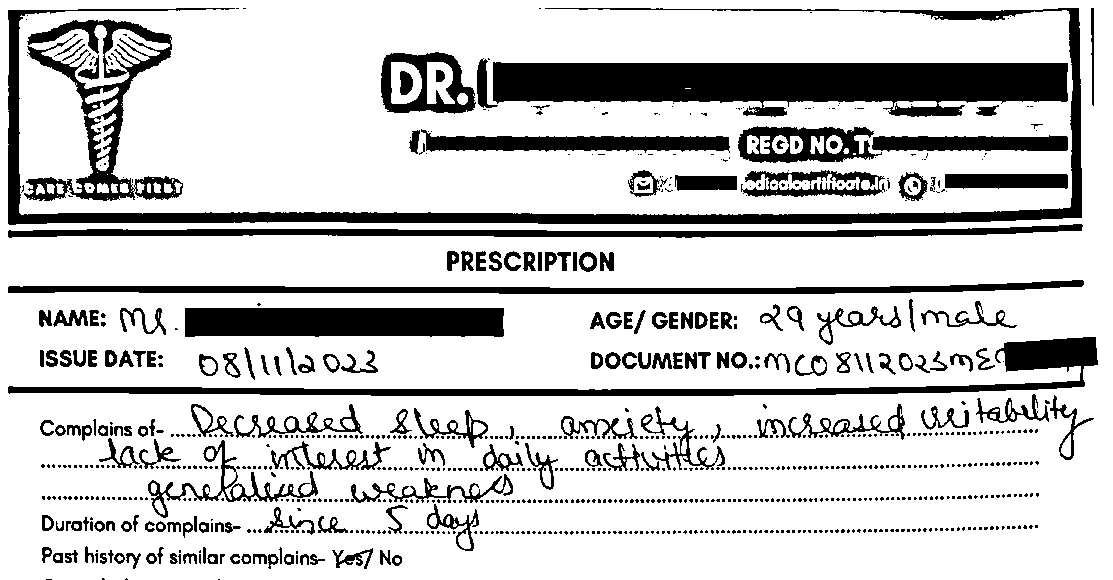 CARE COMES FIRST
DR.
REGD NO.
edicalcertificate.in
PRESCRIPTION
NAME: Mr.
AGE/ GENDER: 29 years/male
ISSUE DATE: 08/11/2023
DOCUMENT NO.: MC08112023ME
Complains of- Decreased sleep, anxiety, increased irritability
lack of interest in daily activities
generalised weakness
Duration of complains- since 5 days
Past history of similar complains- Yes/ No